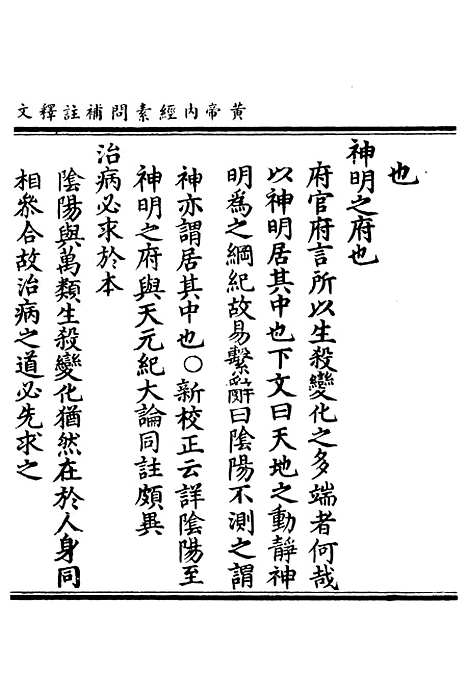 黃帝內經素問補註釋文
也
神明之府也
府官府言所以生殺變化之多端者何哉
以神明居其中也下文曰天地之動靜神
明爲之綱紀故易繫辭曰陰陽不測之謂
神亦謂居其中也○新校正云詳陰陽至
神明之府與天元紀大論同註頗異
治病必求於本
陰陽與萬類生殺變化猶然在於人身同
相叅合故治病之道必先求之